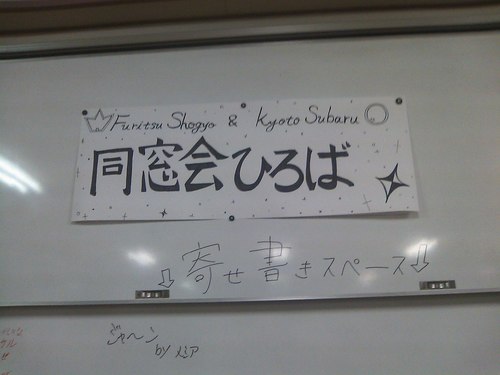 Furitsu Shogyo & Kyoto Subaru
同窓会ひろば
⇩寄せ書きスペース⇩
ジャーン
by メシア